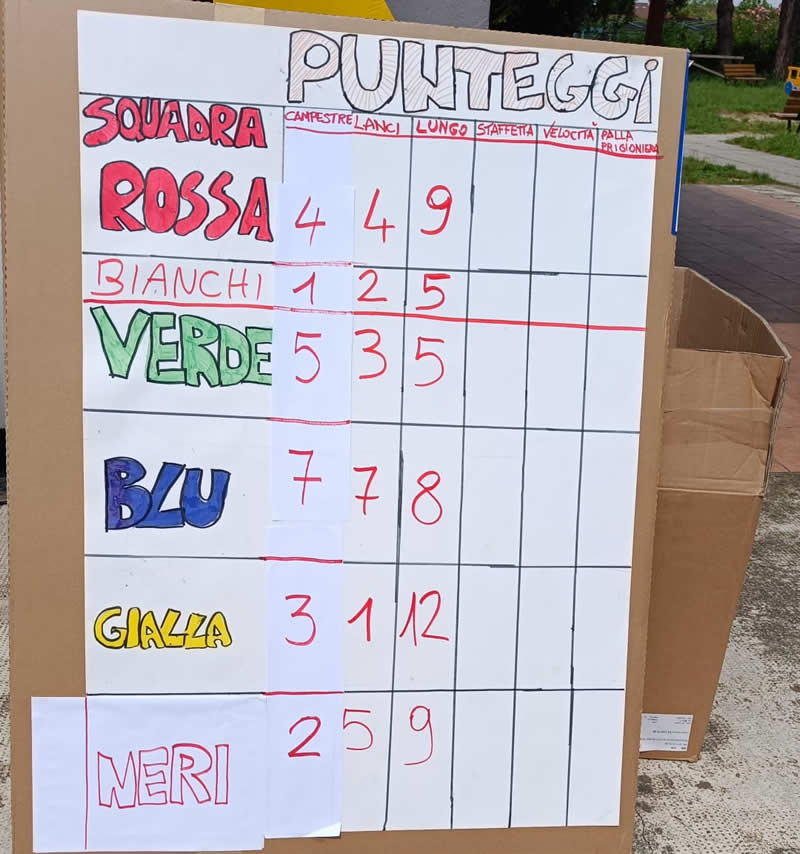 PUNTEGGI
SQUADRA CAMPESTRE LANCI LUNGO STAFFETTA VELOCITÀ PALLA PRIGIONIERA
ROSSA 4 4 9
BIANCHI 1 2 5
VERDE 5 3 5
BLU 7 7 8
GIALLA 3 1 12
NERI 2 5 9